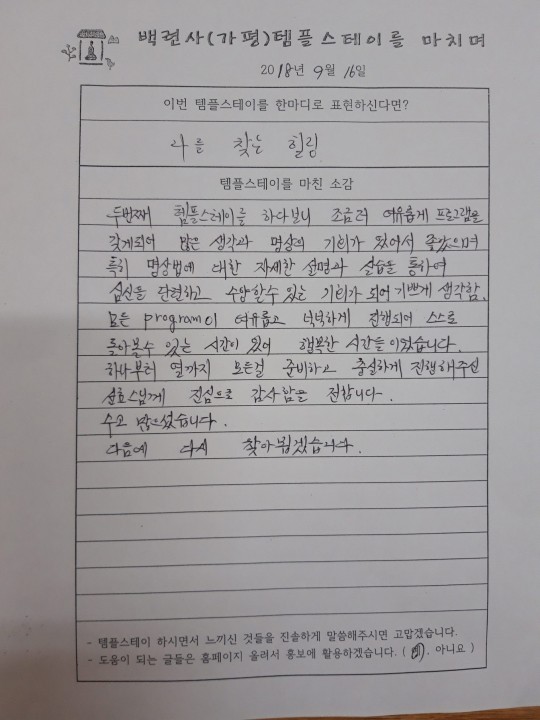 백련사(가평)템플스테이를 마치며
2018년 9월 16일
이번 템플스테이를 한마디로 표현하신다면?
나를 찾는 힐링
템플스테이를 마친 소감
두번째 템플스테이를 하다보니 조금더 여유롭게 프로그램을
갖게되어 많은 생각과 명상의 기회가 되어서 좋았으며
특히 명상법에 대한 자세한 설명과 실습을 통하여
심신을 단련하고 수양할수 있는 기회가 되어 기쁘게 생각함.
모든 program이 여유롭고 넉넉하게 진행되어 스스로
돌아볼수 있는 시간이 있어 행복한 시간들이었습니다.
하나부터 열까지 모든걸 준비하고 충실하게 진행해주신
스님께 진심으로 감사함을 전합니다.
수고 많으셨습니다.
다음에 다시 찾아뵙겠습니다.
- 템플스테이 하시면서 느끼신 것들을 진솔하게 말씀해주시면 고맙겠습니다.
- 도움이 되는 글들은 홈페이지 올려서 홍보에 활용하겠습니다. ( 예, 아니요 )